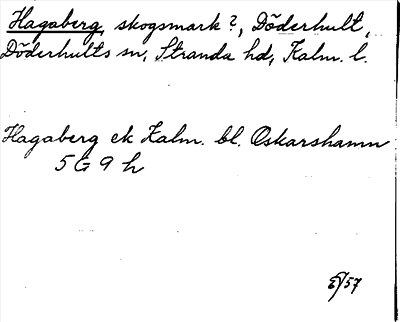 Hagaberg, skogsmark?, Döderhult,
Döderhults sn, Stranda hd, Kalm. l.
Hagaberg ek Kalm. bl. Oskarshamn
5 G 9 h
57